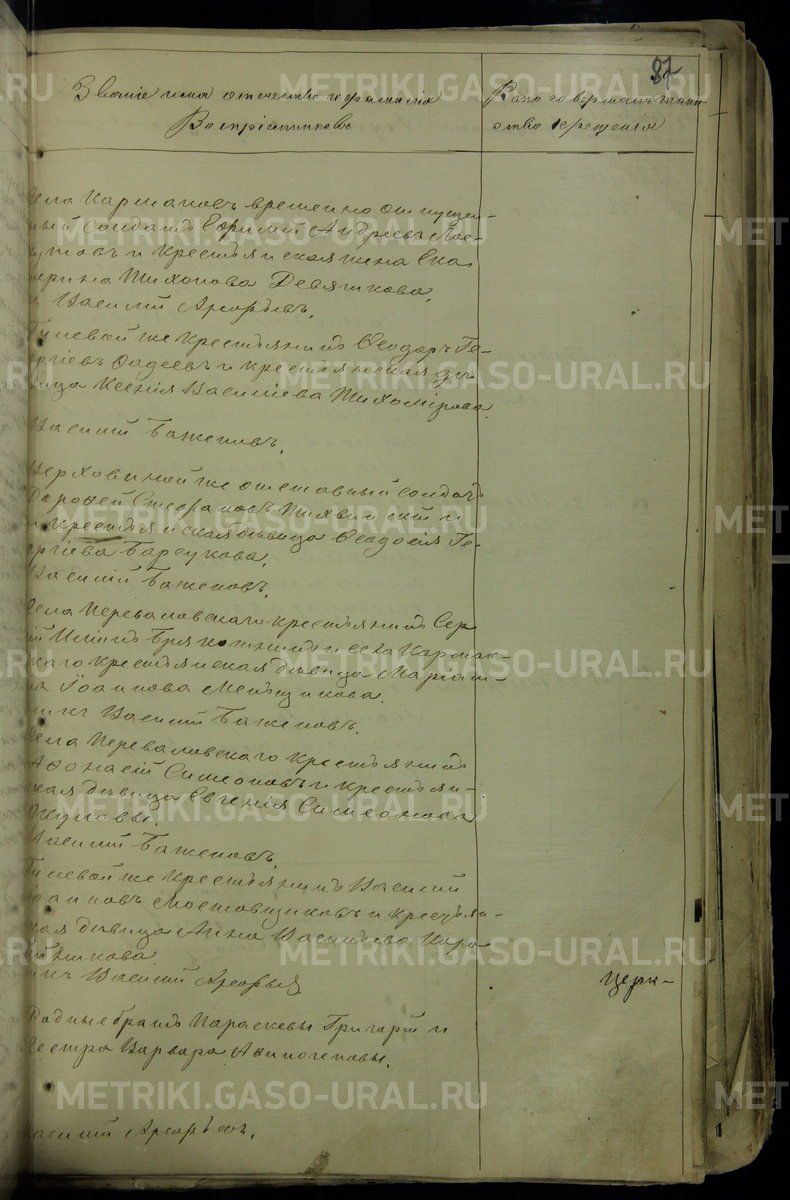 87
Званіе имя отчество и фамилія
Воспріемниковъ
Кто совершалъ таин-
ство крещенія
села Кармаковъ временно отпущен-
ный солдатъ Ефимій Андреевъ
и крестьянская жена Ека
ерина Тихонова Девяткова,
Василій Арефьевъ.
Гилевой же крестьянинъ Ѳеодоръ Ге-
ргіевъ Фадеевъ и крестьянская дѣ
вица Ксенія Василіева Тихомірова
Василій Баженовъ.
Верховиной же отставный солдатъ
Дороѳей Стефановъ Тихвинскій и
крестьянская дѣвица Ѳеодосія Ге-
ргіева Барсукова,
Василій Баженовъ.
села Переваловскаго крестьянинъ Сер
ій Ильинъ и села Кармак-
скаго крестьянская дѣвица Маріам-
на Іоаннова Меньщикова,
икъ Василій Баженовъ.
села Переваловскаго крестьянинъ
Аѳонасій Симеоновъ и крестьян-
ская дѣвица Евгенія Симеонова
Окуловы.
Василій Баженовъ.
Гилевой же крестьянинъ Василій
Іоанновъ Мостовщиковъ и крестьян-
ская дѣвица Анна Васильева
икъ Василій Арефьевъ
Церк-
Родные братъ Параскевы Григорій и
сестра Варвара Аѳиногеновы.
Василій Арефьевъ.
METRIKI.GASO-URAL.RU